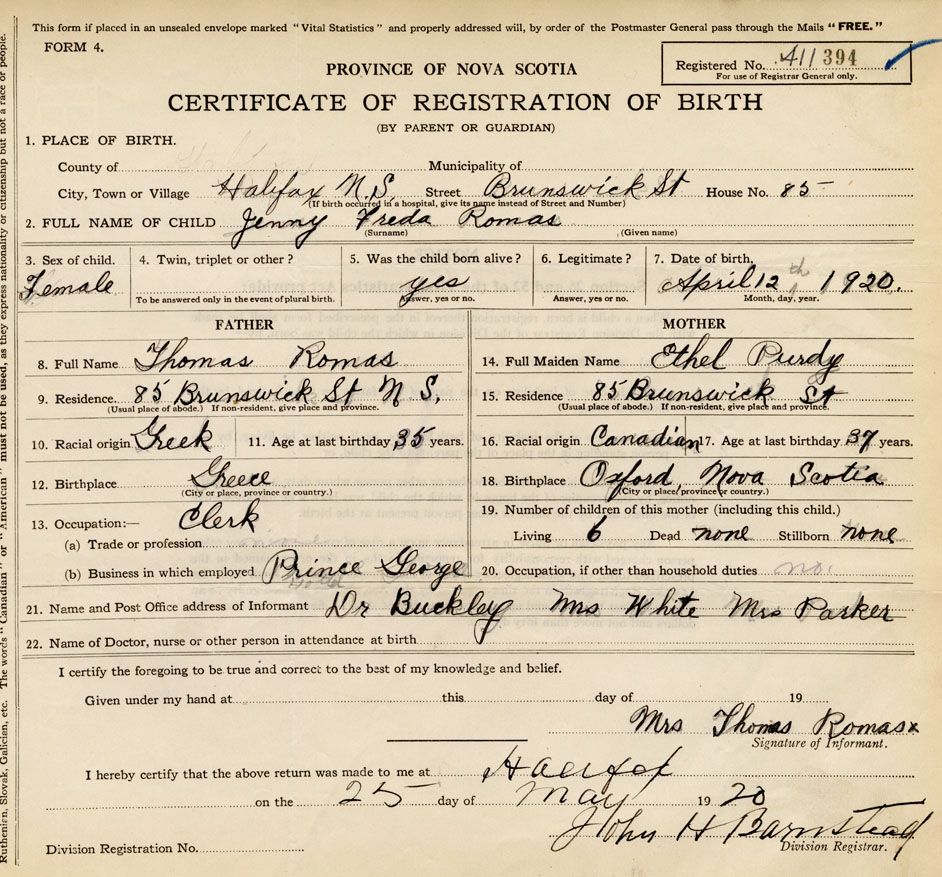 This form if placed in an unsealed envelope marked "Vital Statistics" and properly addressed will, by order of the Postmaster General pass through the Mails "FREE."
FORM 4.
Registered No. 411394
For use of Registrar General only.
PROVINCE OF NOVA SCOTIA
CERTIFICATE OF REGISTRATION OF BIRTH
(BY PARENT OR GUARDIAN)
1. PLACE OF BIRTH.
County of Municipality of
City, Town or Village Halifax N.S. Street Brunswick St House No. 85
(If birth occurred in a hospital, give its name instead of Street and Number)
2. FULL NAME OF CHILD Jenny Freda Romas
(Surname) (Given name)
3. Sex of child. 4. Twin, triplet or other? 5. Was the child born alive? 6. Legitimate? 7. Date of birth.
Female yes April 12th 1920.
To be answered only in the event of plural birth. Answer, yes or no. Answer, yes or no. Month, day, year.
FATHER MOTHER
8. Full Name Thomas Romas 14. Full Maiden Name Ethel Purdy
9. Residence. 85 Brunswick St N S. 15. Residence 85 Brunswick St
(Usual place of abode.) If non-resident, give place and province. (Usual place of abode.) If non-resident, give place and province.
10. Racial origin Greek 11. Age at last birthday 35 years. 16. Racial origin Canadian 17. Age at last birthday 37 years.
12. Birthplace Greece 18. Birthplace Oxford, Nova Scotia
(City or place, province or country.) (City or place, province or country.)
13. Occupation:— Clerk 19. Number of children of this mother (including this child.)
(a) Trade or profession Living 6 Dead none Stillborn none
(b) Business in which employed Prince George 20. Occupation, if other than household duties no.
21. Name and Post Office address of Informant Dr Buckley Mrs White Mrs Parker
22. Name of Doctor, nurse or other person in attendance at birth
I certify the foregoing to be true and correct to the best of my knowledge and belief.
Given under my hand at this day of 19
Mrs Thomas Romas x
Signature of Informant.
I hereby certify that the above return was made to me at Halifax
on the 25 day of May 1920
John H Barnstead
Division Registrar.
Division Registration No.
Ruthenien, Slovak, Galician, etc. The words "Canadian" or "American" must not be used, as they express nationality or citizenship but not a race or people.